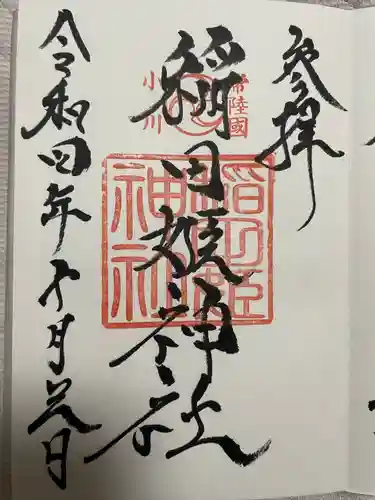 参拝
常陸國
小川
稲田姫神社
稲田姫神社
令和四年十月日